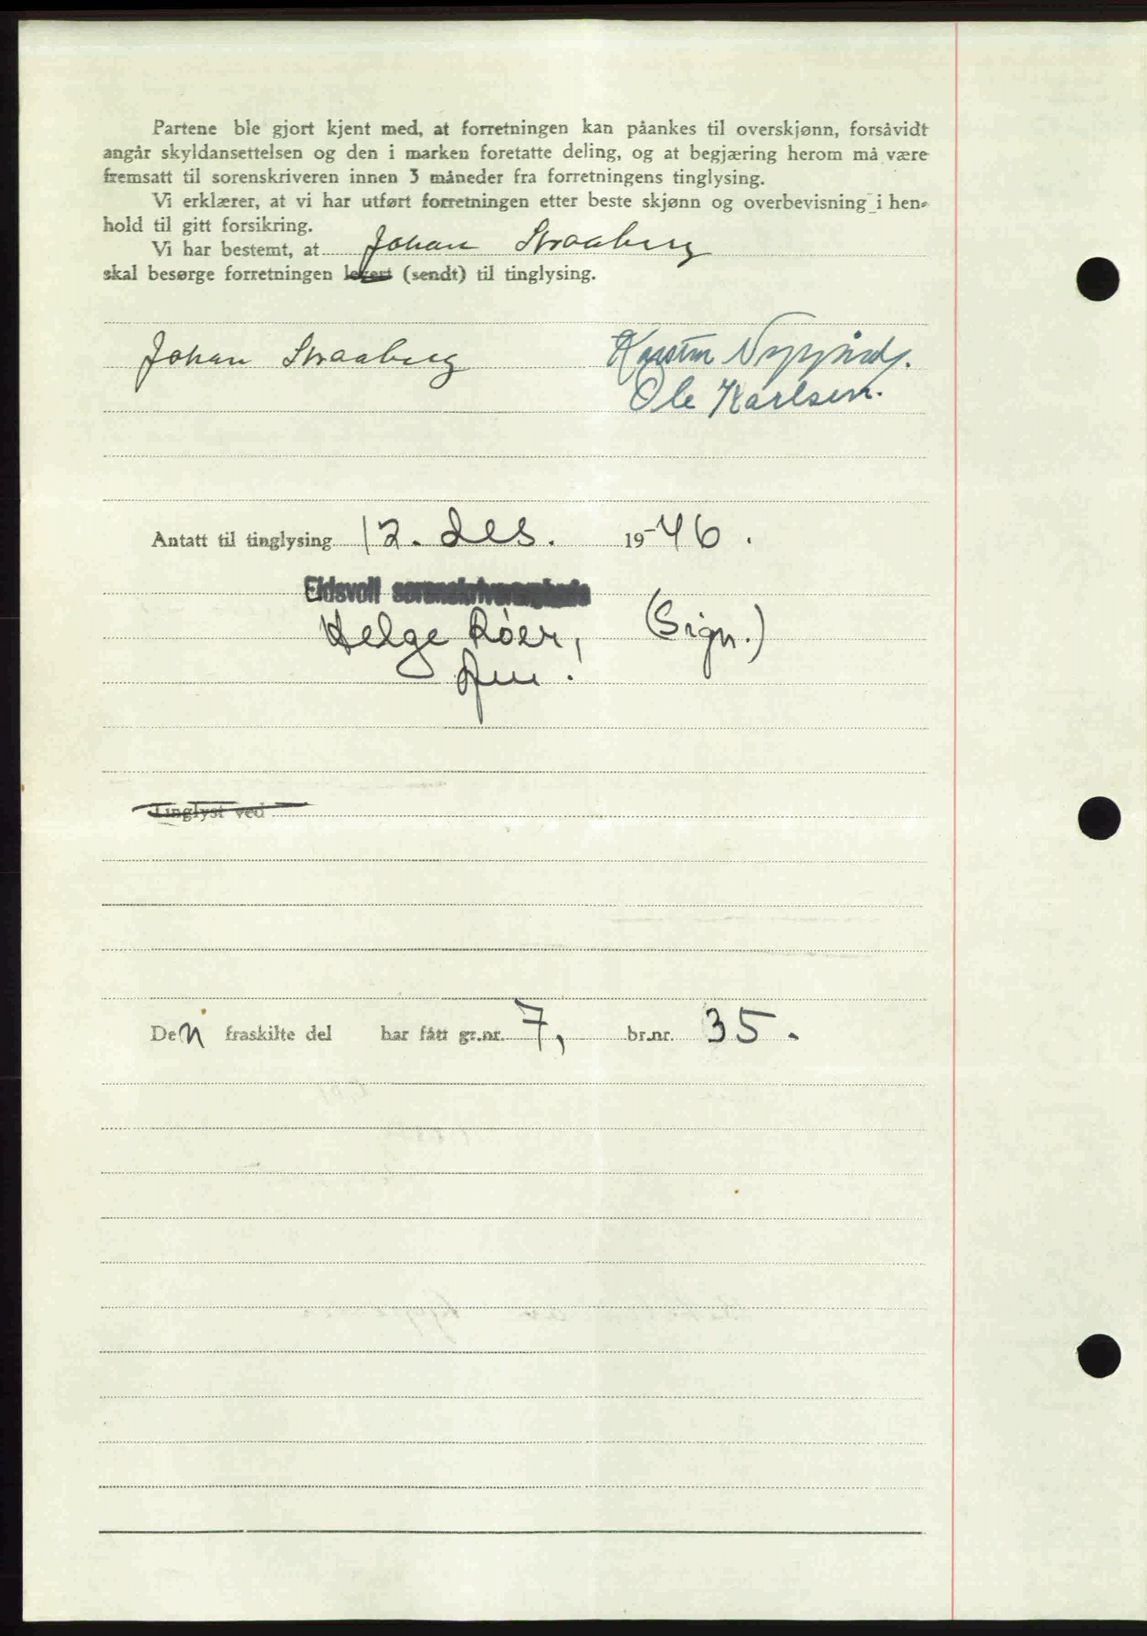 Partene ble gjort kjent med, at forretningen kan påankes til overskjønn, forsåvidt
angår skyldansettelsen og den i marken foretatte deling, og at begjæring herom må være
fremsatt til sorenskriveren innen 3 måneder fra forretningens tinglysing.
Vi erklærer, at vi har utført forretningen etter beste skjønn og overbevisning i hen-
hold til gitt forsikring.
Vi har bestemt, at Johan Straaberg
skal besørge forretningen levert (sendt) til tinglysing.
Johan Straaberg
Ole Karlsen.
Antatt til tinglysing 12. des. 19-46.
Eidsvoll sorenskriverembede
Helge Röer, (Sign.)
Tinglyst ved
Den fraskilte del har fått gr.nr. 7, br.nr. 35.